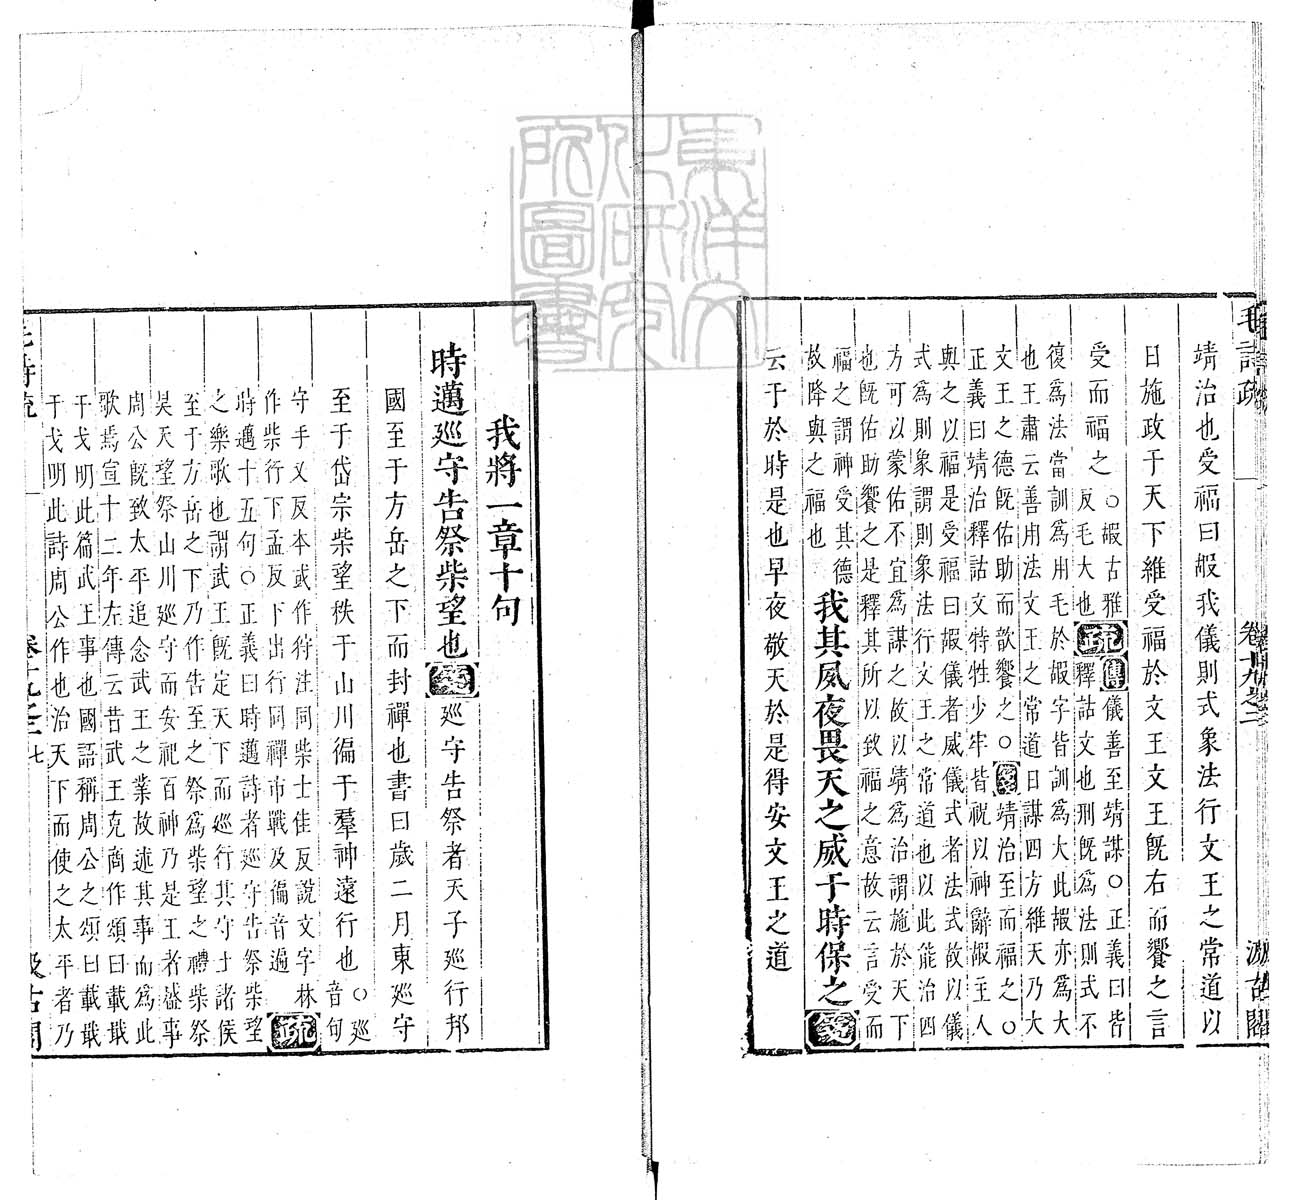 毛詩疏 卷十九之二 汲古閣
靖治也受福曰嘏我儀則式象法行文王之常道以
日施政于天下維受福於文王文王旣右而饗之言
受而福之
○嘏古雅
反毛大也
疏
傳儀善至靖謀○正義曰皆
釋詁文也刑旣爲法則式不
復爲法當訓爲用毛於嘏字皆訓爲大此嘏亦爲大
也王肅云善用法文王之常道日謀四方維天乃大
文王之德旣佑助而歆饗之○箋靖治至而福之○
正義曰靖治釋詁文特牲少牢皆祝以神辭嘏主人
與之以福是受福曰嘏儀者威儀式者法式故以儀
式爲則象謂則象法行文王之常道也以此能治四
方可以蒙佑不宜爲謀之故以靖爲治謂施於天下
也旣佑助饗之是釋其所以致福之意故云言受而
福之謂神受其德
故降與之福也
我其夙夜畏天之威于時保之箋
云于於時是也早夜敬天於是得安文王之道
我將一章十句
時邁巡守告祭柴望也箋巡守告祭者天子巡行邦
國至于方岳之下而封禪也書曰歲二月東巡守
至于岱宗柴望秩于山川徧于羣神遠行也
○巡
音旬
守手又反本或作狩注同柴士佳反說文字林
作柴行下孟反下出行同禪市戰及徧音遍
疏
時邁十五句○正義曰時邁詩者巡守告祭柴望
之樂歌也謂武王旣定天下而巡行其守土諸侯
至于方岳之下乃作告至之祭爲柴望之禮柴祭
昊天望祭山川巡守而安祀百神乃是王者盛事
周公旣致太平追念武王之業故述其事而爲此
歌焉宣十二年左傳云昔武王克商作頌曰載戢
干戈明此篇武王事也國語稱周公之頌曰載戢
干戈明此詩周公作也治天下而使之太平者乃
毛詩疏 卷十九之二 七 汲古閣
東洋文化研究所圖書